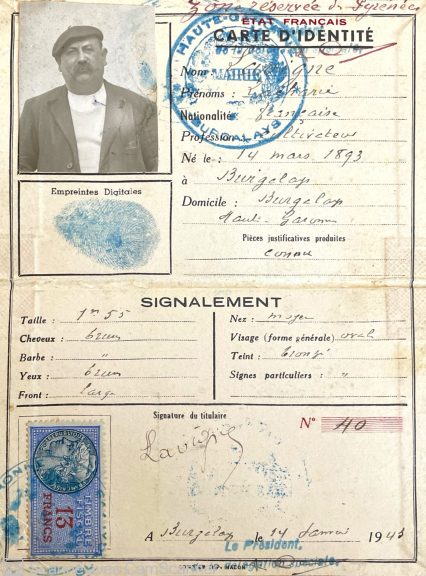 Zone réservée des Pyrénées
ÉTAT FRANÇAIS
CARTE D'IDENTITÉ
HAUTE-G
MAIRIE
BURGALAYS
Nom
Prénoms :
Nationalité : française
Profession : cultivateur
Né le : 14 mars 1893
à Burgelop
Domicile : Burgelop
Haute Garonne
Pièces justificatives produites
connu
Empreintes Digitales
SIGNALEMENT
Taille : 1m 55
Cheveux : brun
Barbe : "
Yeux : brun
Front : large
Nez : moyen
Visage (forme générale) oval
Teint : bronzé
Signes particuliers : "
Signature du titulaire
Nº 40
Lavigne
TIMBRE
13
FRANCS
A Burgelop le 14 Janvier 1943
Le Président,